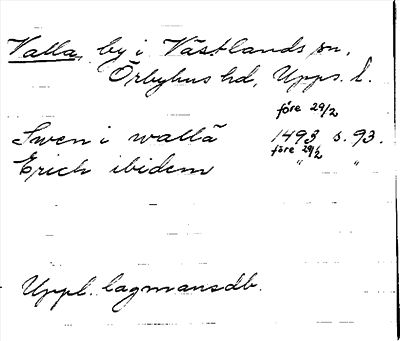 Valla, by i Västlands sn,
Örbyhus hd, Upps. l.
före 29/2
Swen i wallä 1493 s. 93.
före 29/2
Erich ibidem " "
Uppl. lagmansdb.